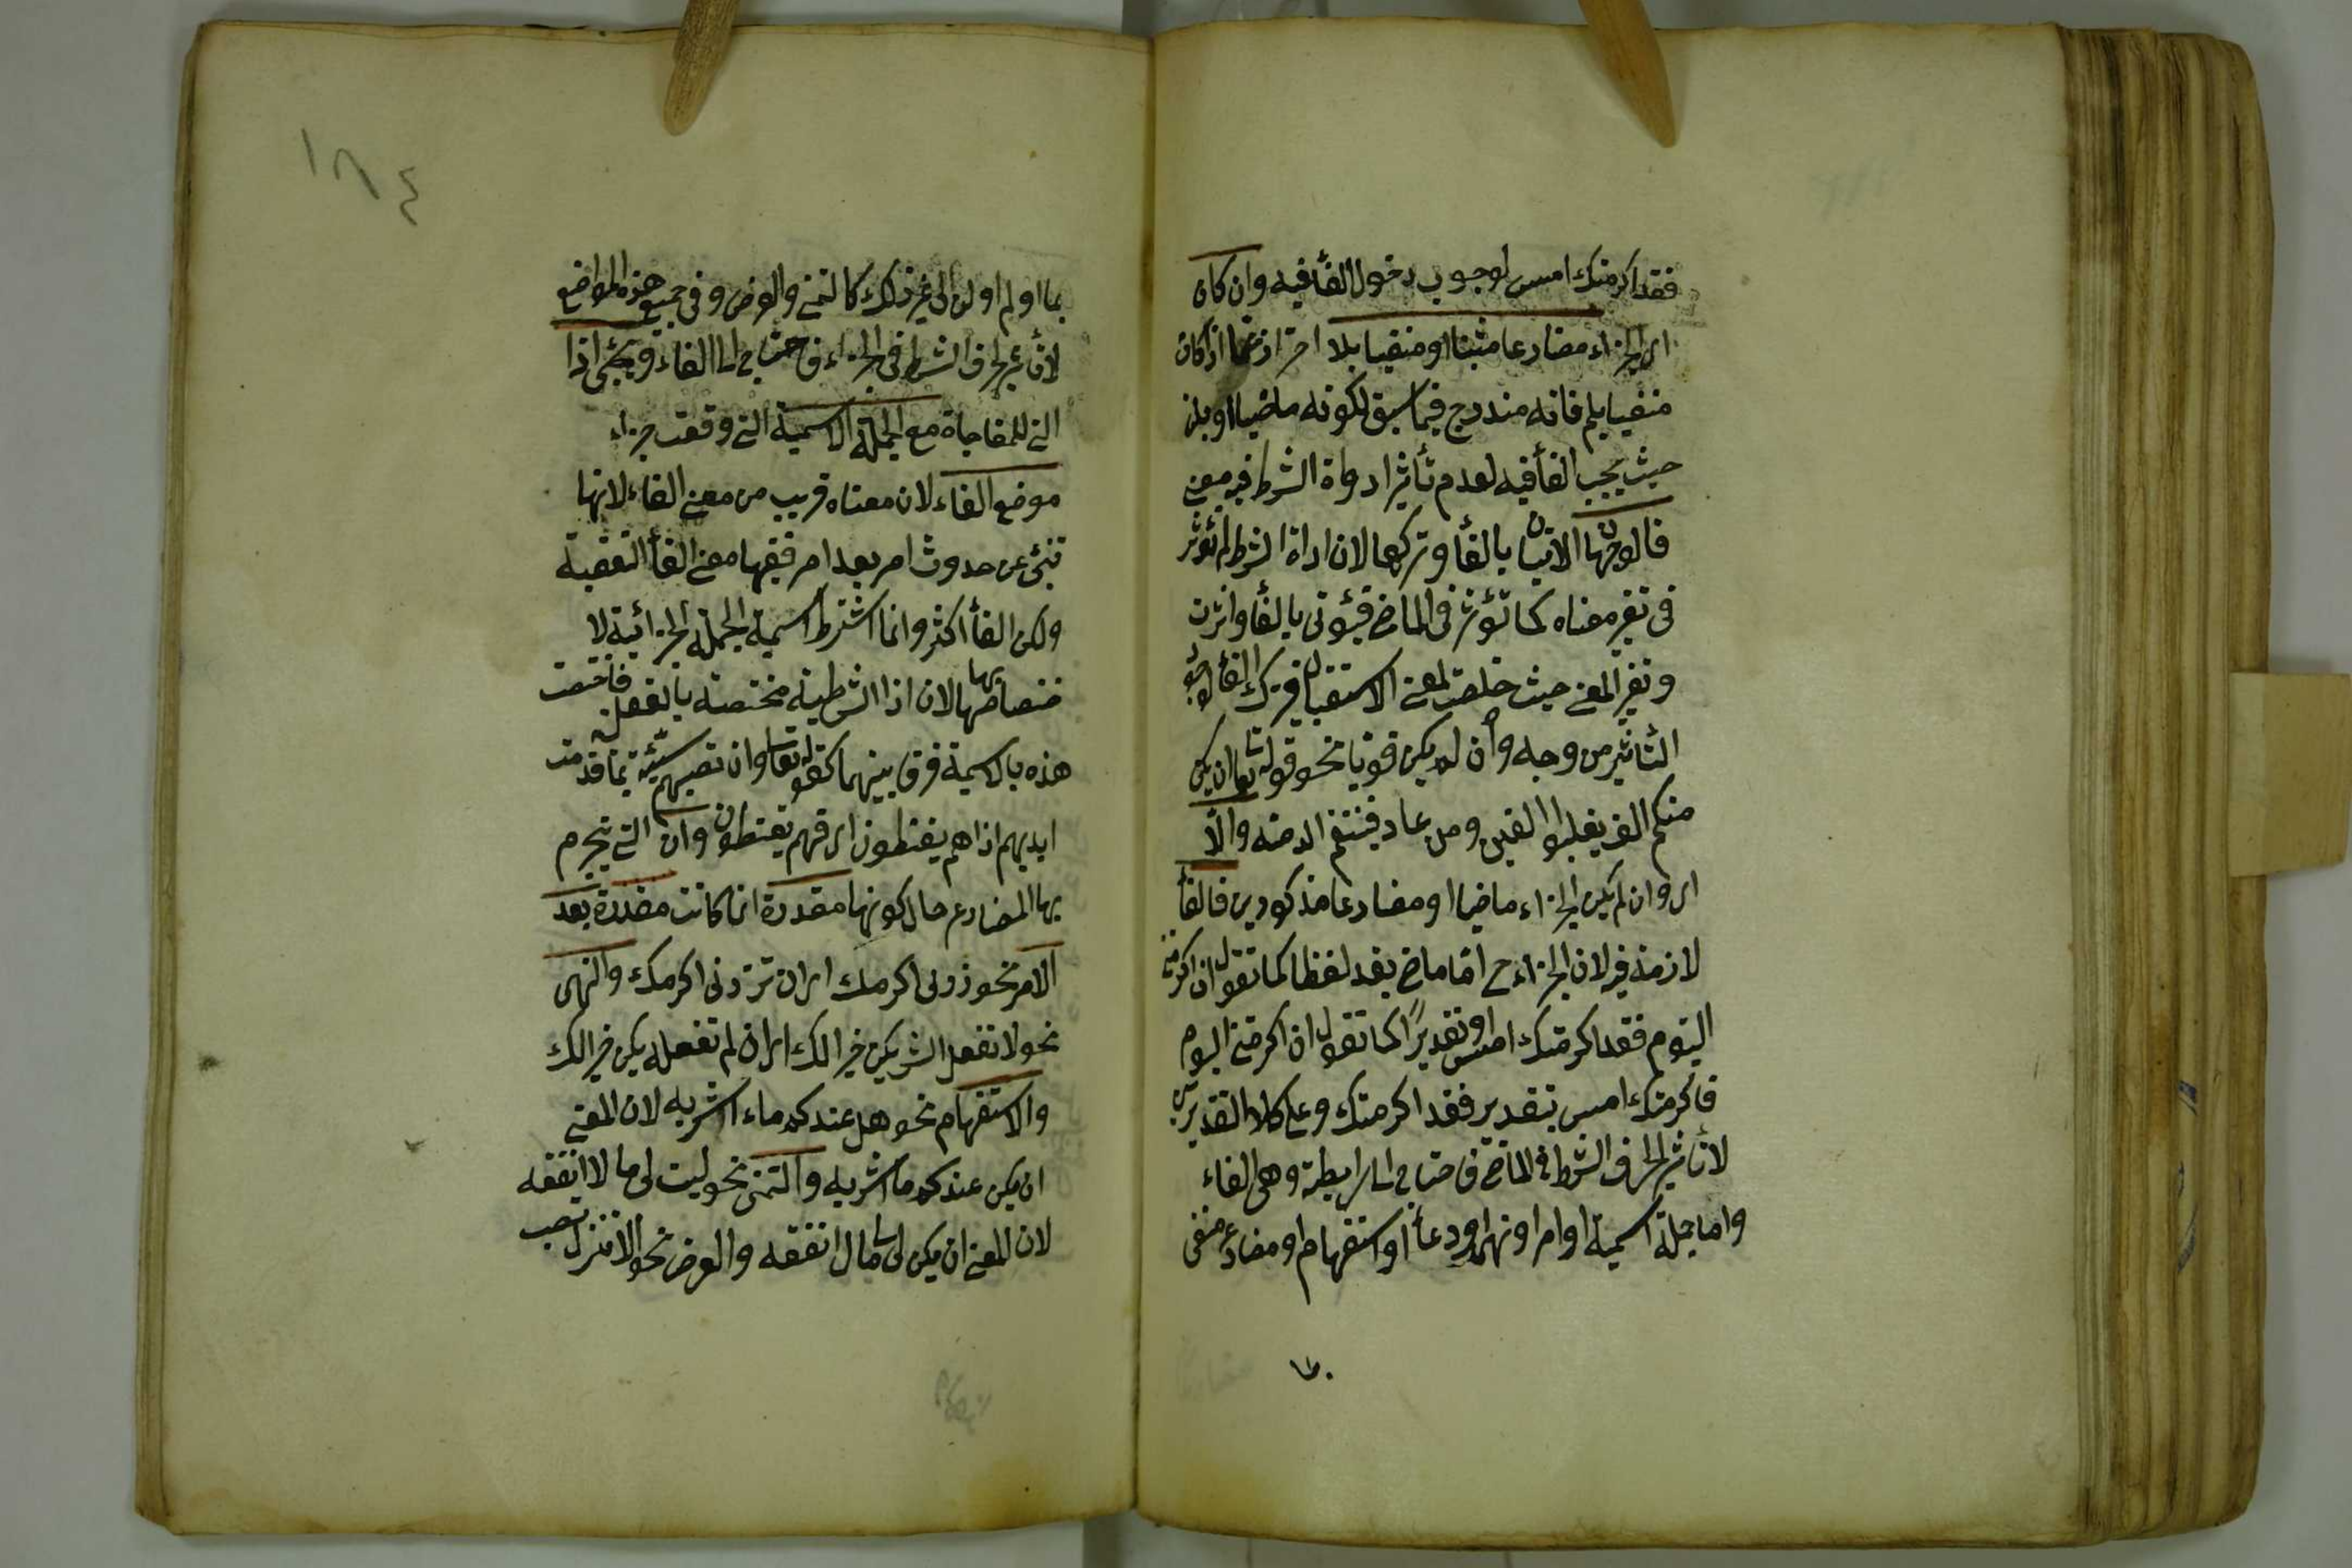 فقد اكرمتك امس لوجوب دخول الفأ فيه وان كان
اى الجزاء مضارعا مثبتا او منفيا بلا احترازعما اذا كان
منفيا بلم فانه مندرج فيما سبق لكونه ماضيا او بلن
حيث يجب الفأ فيه لعدم تأثير ادواة الشرط فيه معنى
فالوجهان الاتيان بالفأ وتركها لان اداة الشرط لم تؤثر
فى تغير معناه كما تؤثر فى الماضى فيؤتى بالفأ واثرت
وتغير المعنى حيث خلصت لمعنى الاستقبال فترك الفأ لوجود
التأثير من وجه وأن لم يكن قويا نحو قوله تعا ان يكن
منكم الف يغلبوا الفين ومن عاد فينتقم الله منه والّا
اى وان لم يكن الجزاء ماضيا او مضارعا مذكورين فالفأ
لازمة فيه لان الجزاء ح اما ماض بقد لفظا كما تقول ان اكرمتنى
اليوم فقد اكرمتك امس او تقديرًا كما تقول ان اكرمتنى اليوم
فاكرمتك امس بتقدير فقد اكرمتك وعلى كلا التقديرين
لا تأثير لحرف الشرط فى الماضى فاحتاج الى الرابطة وهى الفاء
واما جملة اسمية او امر او نهى او دعأ او استفهام او مضارع منفى
١٨٤
بما او لم او لن الى غير ذلك كالتمنى والعرض وفى جميع هذه المواضع
لا تأثير لحرف الشرط فى الجزاء فاحتاج الى الفاء ويجئ اذا
التى للمفاجاة مع الجملة الاسمية التى وقعت جزاء
موضع الفاء لان معناه قريب من معنى الفاء لانها
تنبئ عن حدوث امر بعد امر ففيها معنى الفأ التعقيبة
ولكن الفأ اكثر وانما اشترط اسمية الجملة الجزائية لا
ختصاصها بها لان اذا الشرطية مختصة بالفعل فاختصت
هذه بالاسمية فرق بينهما كقوله تعا وان تصبهم سيئة بما قدمت
ايديهم اذا هم يقنطون اى فهم يقنطون وان التى يجزم
بها المضارع حال كونها مقدرة انما كانت مقدرة بعد
الامر نحو زرنى اكرمك اى ان تزرنى اكرمك والنهى
نحو لا تفعل الشر يكن خيرا لك اى ان لم تفعله يكن خيرا لك
والاستفهام نحو هل عندكم ماء اشربه لان المعنى
ان يكن عندكم ما اشربه والتمنى نحو ليت لى ما لا انفقه
لان المعنى ان يكن لى مال انفقه والعرض نحو الا تنزل تصب